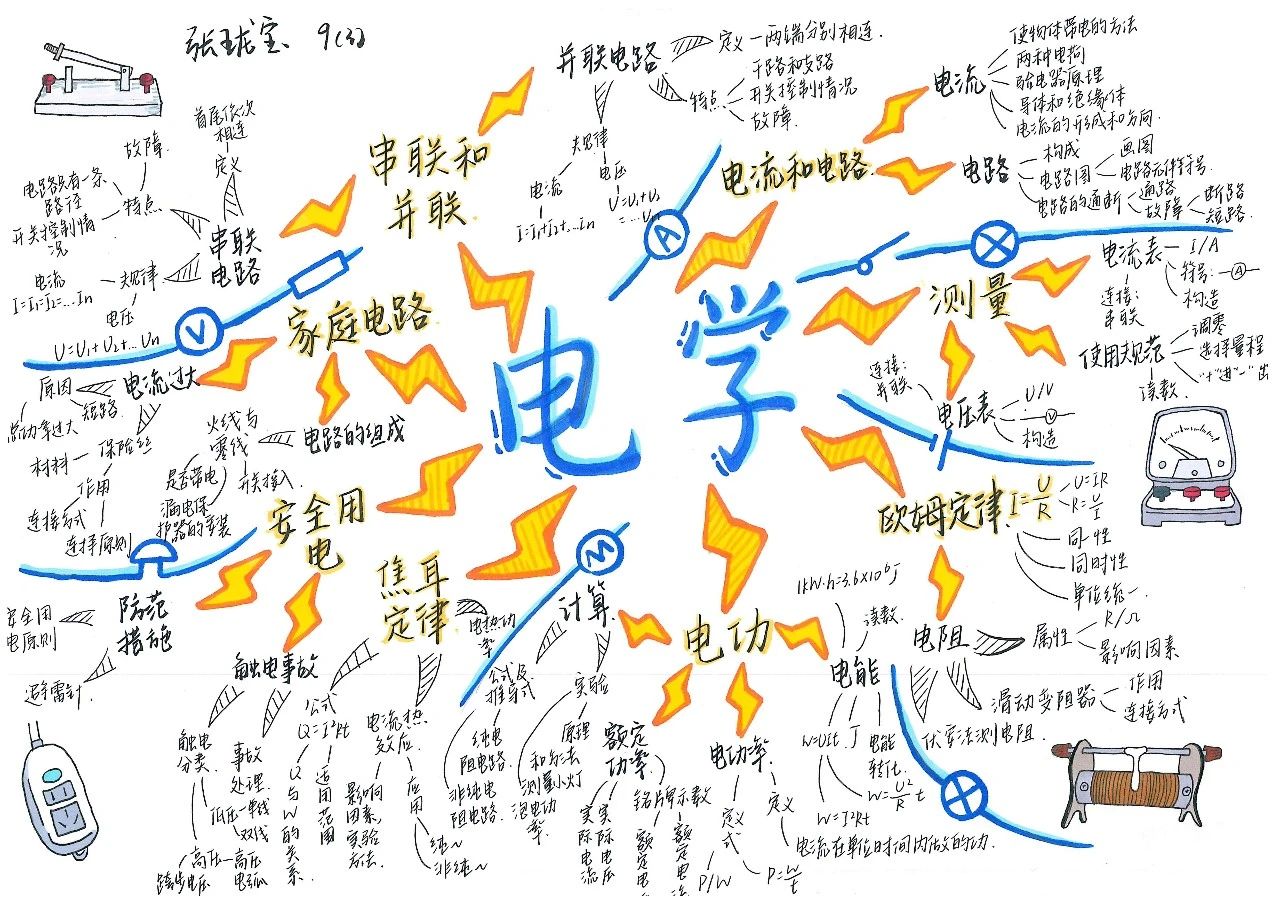 张珑宝 9(3)
电学
串联和
并联
并联电路
定义
两端分别相连.
特点
干路和支路
开关控制情况
故障.
规律
电流
I=I₁+I₂+...In
电压
U=U₁=U₂
=...Un
串联
电路
定义
首尾依次
相连
特点
故障.
电路只有一条
路径
开关控制情
况
规律
电流
I=I₁=I₂=...In
电压
U=U₁+U₂+...Un
电流和电路
电流
使物体带电的方法
两种电荷
验电器原理
导体和绝缘体
电流的形成和方向.
电路
构成
电路图
画图
电路元件符号.
电路的通断
通路
故障
断路
短路.
A
V
M
测量
电流表
I/A
符号: A
构造
连接:
串联
使用规范
调零
选择量程
"+"进"-"出
读数.
电压表
连接:
并联
U/V
V
构造
欧姆定律
I=U/R
U=IR
R=U/I
同一性
同时性
单位统一.
电阻
属性
R/Ω
影响因素
滑动变阻器
作用
连接方式
伏安法测电阻.
电功
电能
1kW·h=3.6×10⁶J
读数.
W=UIt
J
W=I²Rt
电能
转化.
W=U²/R t
电功率.
定义
电流在单位时间内做的功.
定义
式
P/W
P=W/t
额定
功率.
铭牌示数
额定电
额定电流
实际电流
实际电压
计算.
公式及
推导式
纯电
阻电路.
非纯电
阻电路.
实验
原理
和方法
测量小灯
泡电功
率.
焦耳
定律.
电热功
率
公式
Q=I²Rt
Q与W的关系
适用范围
电流热
效应.
影响
因素,
实验
方法.
应用
纯~
非纯~
安全用
电
防范
措施
安全用
电原则
避雷针.
触电事故
触电
分类.
事故
处理.
低压
单线
双线
高压
高压
电弧
跨步电压
家庭电路.
电流过大
原因
短路.
总功率过大
保险丝
材料
作用
连接方式
选择原则
电路的组成
火线与
零线
是否带电
开关接入.
漏电保
护器的安装